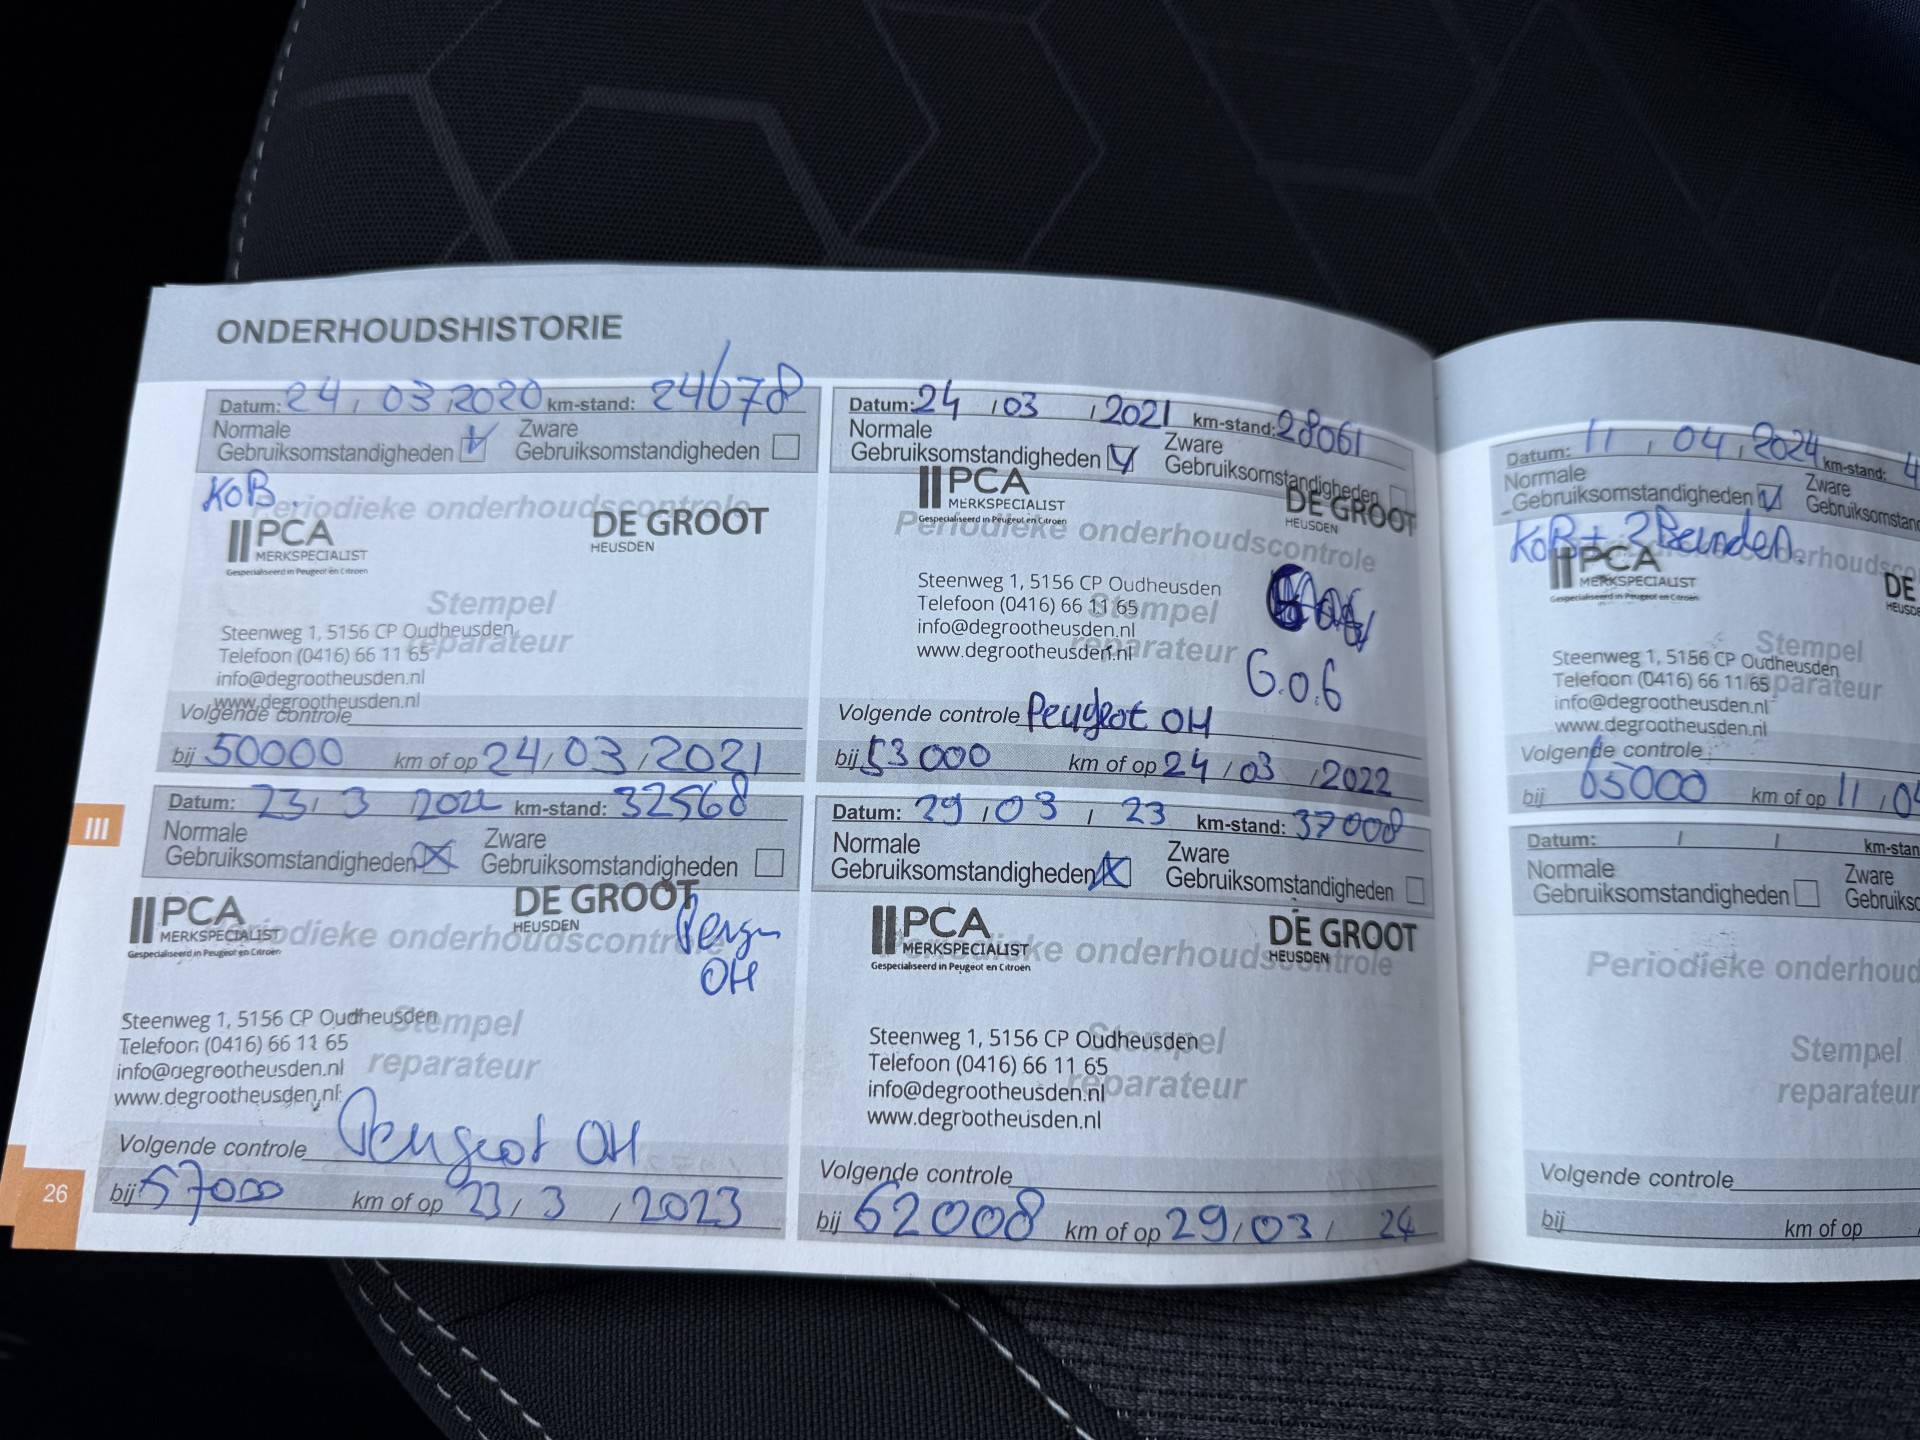 ONDERHOUDSHISTORIE
Datum: 24 / 03 / 2020 km-stand: 24678
Normale Gebruiksomstandigheden Zware Gebruiksomstandigheden
KOB.
Periodieke onderhoudscontrole
PCA DE GROOT
MERKSPECIALIST HEUSDEN
Gespecialiseerd in Peugeot en Citroën
Stempel
reparateur
Steenweg 1, 5156 CP Oudheusden
Telefoon (0416) 66 11 65
info@degrootheusden.nl
www.degrootheusden.nl
Volgende controle
bij 50000 km of op 24 / 03 / 2021
Datum: 24 / 03 / 2021 km-stand: 28061
Normale Gebruiksomstandigheden Zware Gebruiksomstandigheden
PCA DE GROOT
MERKSPECIALIST HEUSDEN
Gespecialiseerd in Peugeot en Citroën
Periodieke onderhoudscontrole
Steenweg 1, 5156 CP Oudheusden
Telefoon (0416) 66 11 65
Stempel
info@degrootheusden.nl
www.degrootheusden.nl
reparateur
G.O.G
Volgende controle Peugeot OH
bij 53000 km of op 24 / 03 / 2022
Datum: 23 / 3 / 2022 km-stand: 32568
Normale Gebruiksomstandigheden Zware Gebruiksomstandigheden
PCA DE GROOT
MERKSPECIALIST HEUSDEN
Gespecialiseerd in Peugeot en Citroën
Periodieke onderhoudscontrole
OH
Steenweg 1, 5156 CP Oudheusden
Stempel
Telefoon (0416) 66 11 65
reparateur
info@degrootheusden.nl
www.degrootheusden.nl
Volgende controle Peugeot OH
bij 57000 km of op 23 / 3 / 2023
Datum: 29 / 03 / 23 km-stand: 37008
Normale Gebruiksomstandigheden Zware Gebruiksomstandigheden
PCA DE GROOT
MERKSPECIALIST HEUSDEN
Gespecialiseerd in Peugeot en Citroën
Periodieke onderhoudscontrole
Steenweg 1, 5156 CP Oudheusden
Stempel
Telefoon (0416) 66 11 65
reparateur
info@degrootheusden.nl
www.degrootheusden.nl
Volgende controle
bij 62008 km of op 29 / 03 / 24
III
26
Datum: 11 / 04 / 2024 km-stand: 4
Normale Gebruiksomstandigheden Zware Gebruiksomstan
KOB + 2
PCA DE
MERKSPECIALIST HEUSD
Gespecialiseerd in Peugeot en Citroën
Stempel
reparateur
Steenweg 1, 5156 CP Oudheusden
Telefoon (0416) 66 11 65
info@degrootheusden.nl
www.degrootheusden.nl
Volgende controle
bij 65000 km of op 11 / 04
Datum: / / km-stan
Normale Gebruiksomstandigheden Zware Gebruikso
Periodieke onderhoud
Stempel
reparateur
Volgende controle
bij km of op